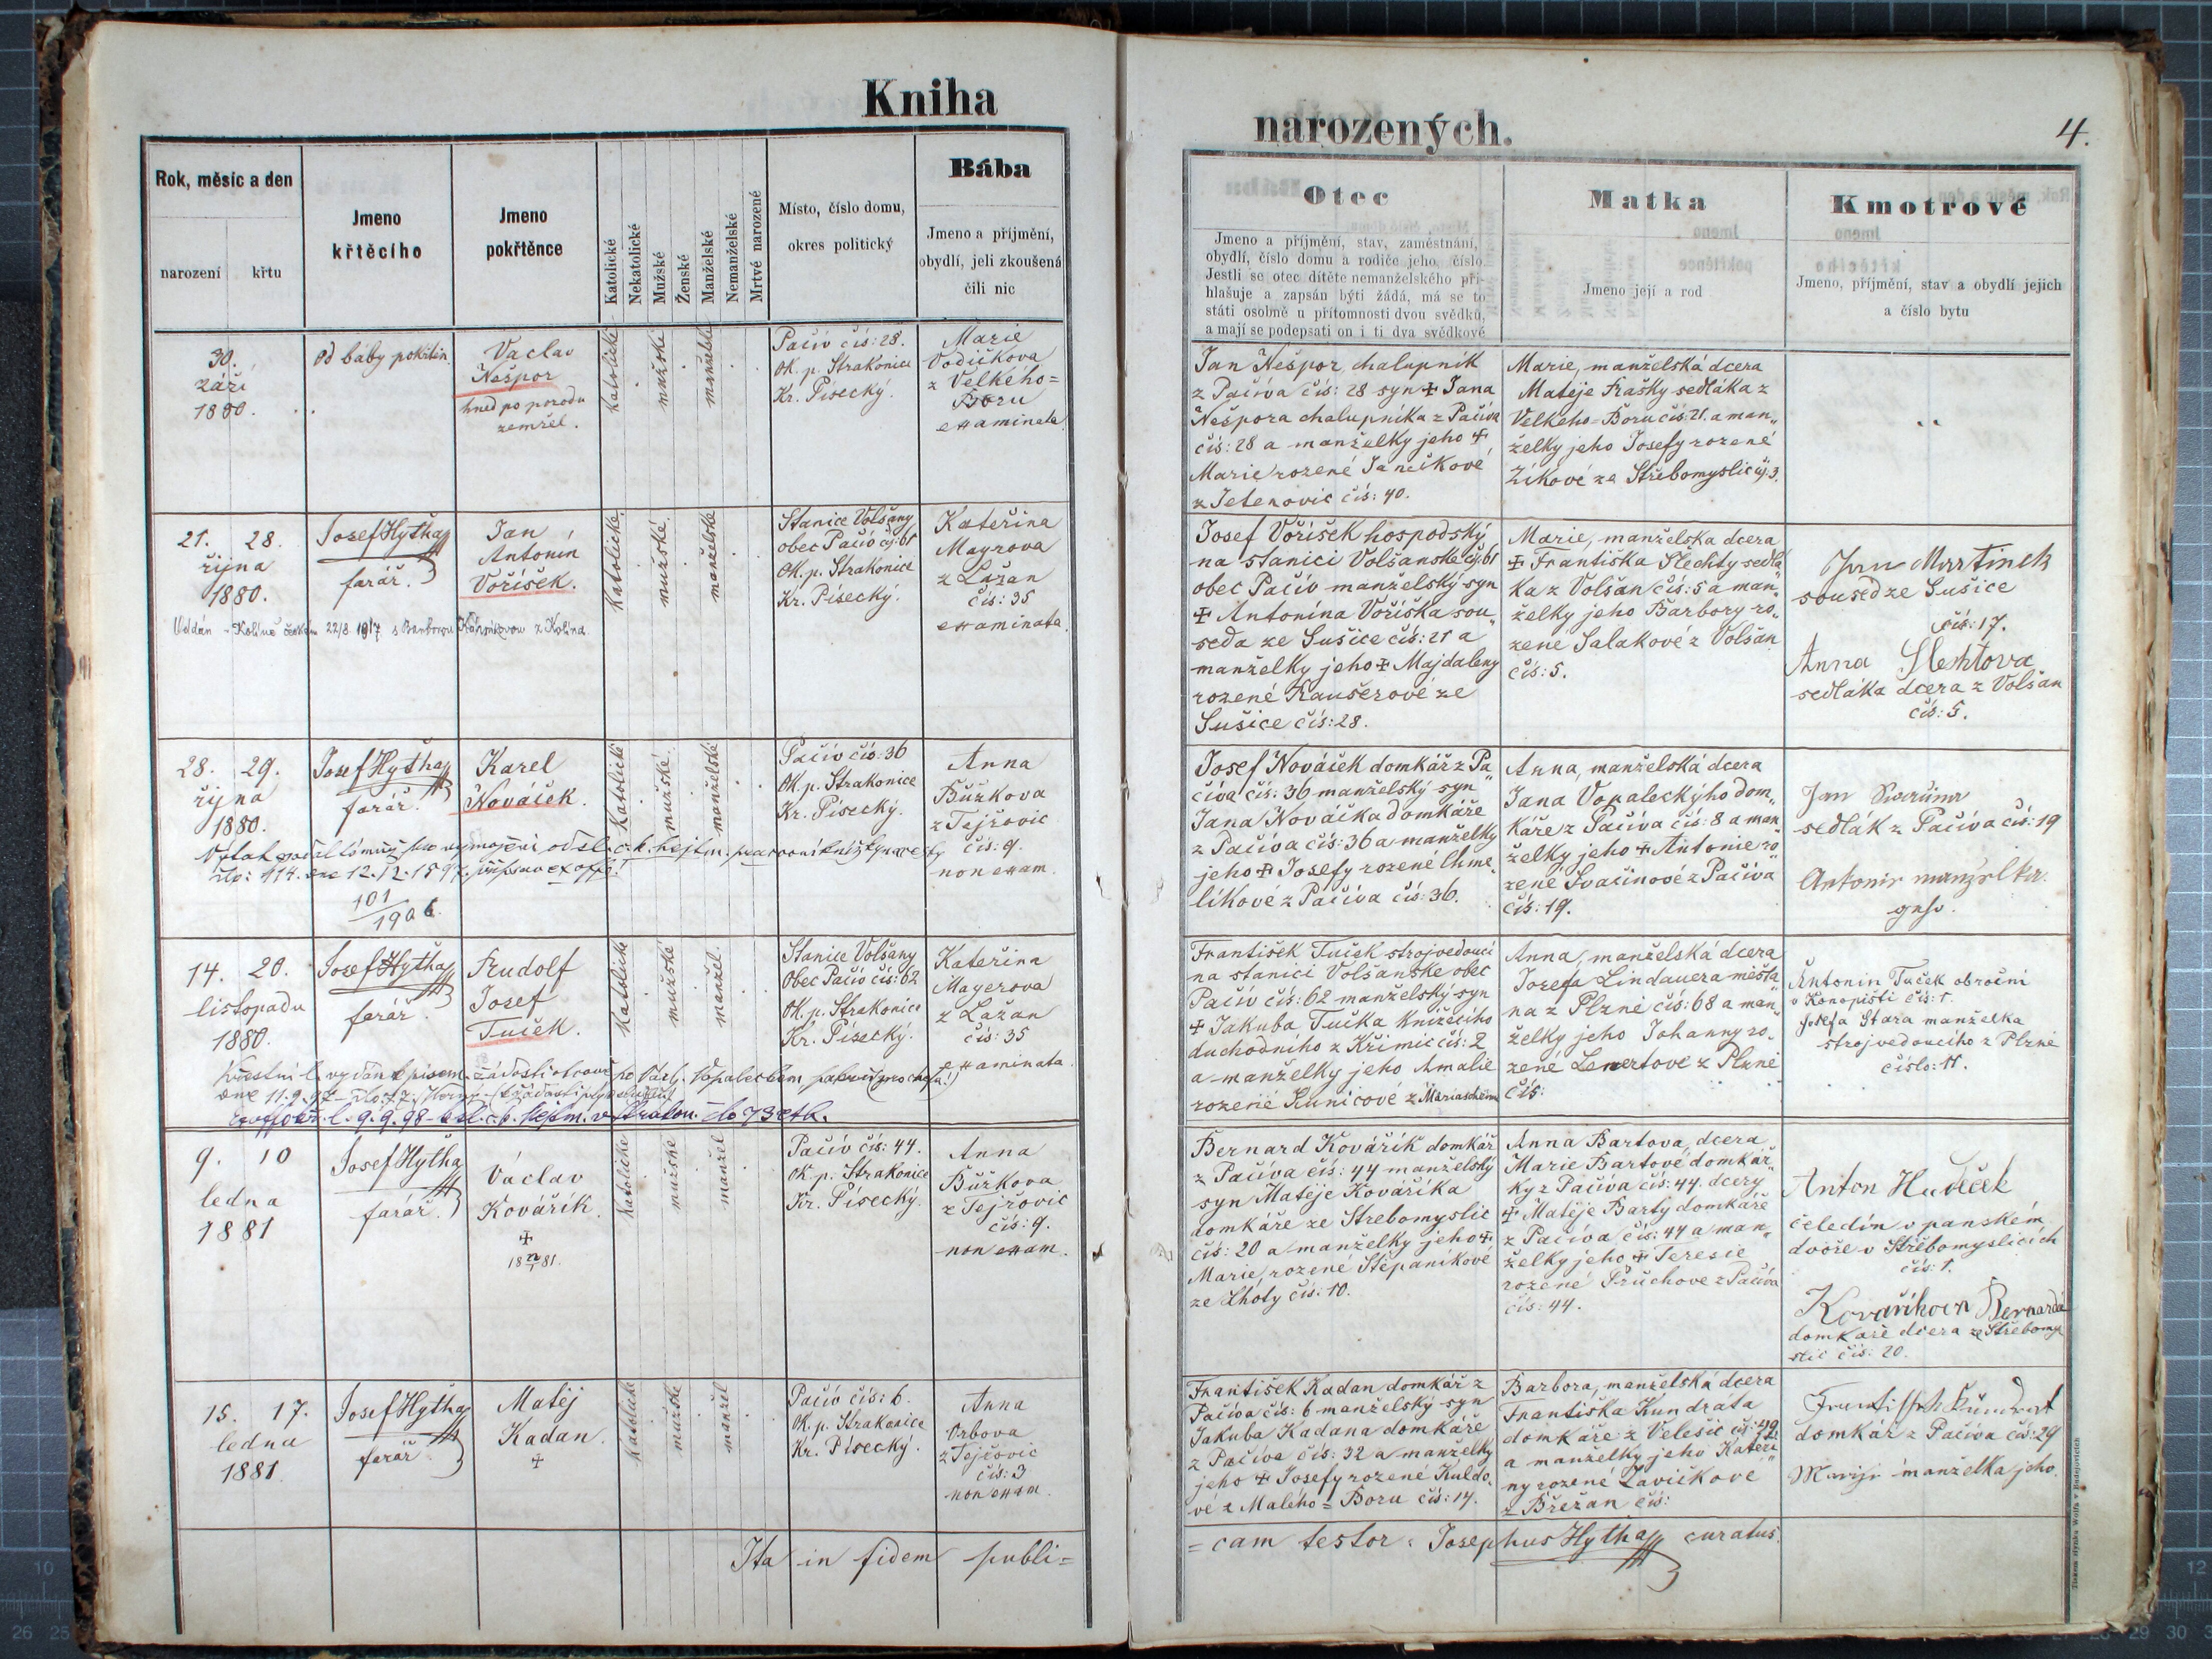 Kniha
Rok, měsíc a den
narození
křtu
Jmeno
křtěcího
Jmeno
pokřtěnce
Katolické
Nekatolické
Mužské
Ženské
Manželské
Nemanželské
Mrtvé narozené
Místo, číslo domu,
okres politický
Bába
Jmeno a příjmění,
obydlí, jeli zkoušená
čili nic
30.
září
1880.
Od báby pokřtěn.
Václav
Nešpor
hned po porodu
zemřel.
katolické
mužské
manželské
Pačív čís: 28.
Ok. p. Strakonice
Kr. Písecký.
Marie
Vodičkova
z Velkého=
Boru
examinata
21. 28.
října
1880.
Josef Hytha
farář.
Jan
Antonín
Voříšek.
Katolické
mužské
manželské
Stanice Volšany
obec Pačív čs: 61
Ok. p. Strakonice
Kr. Písecký.
Kateřina
Mayrova
z Lažan
čís: 35
examinata.
Oddán v Kolíně českém 22/8. 1917 s Barborou z Kolína.
28. 29.
října
1880.
Josef Hytha
farář.
Karel
Nováček.
Katolické
mužské
manželské
Pačív čís: 36
Ok. p. Strakonice
Kr. Písecký.
Anna
Bůžkova
z Tejřovic
čís: 9.
non exam.
101
1906.
14. 20.
listopadu
1880.
Josef Hytha
farář.
Rudolf
Josef
Tuček.
Katolické
mužské
manžel.
Stanice Volšany
Obec Pačív čís: 62
Ok. p. Strakonice
Kr. Písecký.
Kateřina
Mayerova
z Lažan
čís: 35
examinata.
9. 10
ledna
1881
Josef Hytha
farář.
Václav
Kovářík.
+
18 21/1 81.
Katolické
mužské
manžel
Pačív čís: 44.
Ok. p. Strakonice
Kr. Písecký.
Anna
Bůžkova
z Tejřovic
čís: 9.
non exam.
15. 17.
ledna
1881.
Josef Hytha
farář.
Matěj
Kadan.
+
Katolické
mužské
manžel
Pačív čís: 6.
Ok. p. Strakonice
Kr. Písecký.
Anna
Vrbova
z Tejřovic
čís: 3
non exam.
Ita in fidem publi=
narozených.
4.
Otec
Jmeno a příjmění, stav, zaměstnání,
obydlí, číslo domu a rodiče jeho, číslo.
Jestli se otec dítěte nemanželského při-
hlašuje a zapsán býti žádá, má se to
státi osobně u přítomnosti dvou svědků,
a mají se podepsati on i ti dva svědkové
Matka
Jmeno její a rod
Kmotrové
Jmeno, příjmění, stav a obydlí jejich
a číslo bytu
Jan Nešpor, chalupník
z Pačíva čís: 28 syn + Jana
Nešpora chalupníka z Pačíva
čís: 28 a manželky jeho +
Marie rozené Jančíkové
z Jetenovic čís: 40.
Marie, manželská dcera
Matěje Frašky sedláka z
Velkého=Boru čís: 21. a man„
želky jeho Josefy rozené
Zíkové ze Střebomyslic čs: 3.
Josef Voříšek hospodský
na stanici Volšanské čs: 61
obec Pačív manželský syn
+ Antonína Voříška sou„
seda ze Sušice čís: 21 a
manželky jeho + Majdaleny
rozené Kaušerové ze
Sušice čís: 28.
Marie, manželská dcera
+ Františka Šlechty sedlá„
ka z Volšan čís: 5 a man„
želky jeho Barbory ro„
zené Salakové z Volšan
čís: 5.
Jan Martinek
soused ze Sušice
čís: 17.
Anna Slechtova
sedláka dcera z Volšan
čís: 5.
Josef Nováček domkář z Pa„
číva čís: 36 manželský syn
Jana Nováčka domkáře
z Pačíva čís: 36 a manželky
jeho + Josefy rozené Chme„
líkové z Pačíva čís: 36.
Anna, manželská dcera
Jana Vopaleckýho dom„
káře z Pačíva čís: 8 a man„
želky jeho + Antonie ro„
zené Svačinové z Pačíva
čís: 19.
Jan Svačina
sedlák z Pačíva čís: 19
Antonie manželka
jeho.
František Tuček strojvedoucí
na stanici Volšanské obec
Pačív čís: 62 manželský syn
+ Jakuba Tučka knížecího
duchodního z Křimic čís: 2
a manželky jeho Amalie
rozené Kunicové z Mariaschein
Anna, manželská dcera
Josefa Lindauera měšťa„
na z Plzně čís: 68 a man„
želky jeho Johanny ro„
zené Lenertové z Plzně
čís:
Antonín Tuček obroční
v Konopišti čís: 1.
Josefa Stara manželka
strojvedoucího z Plzně
číslo: 11.
Bernard Kovářík domkář
z Pačíva čís: 44 manželský
syn Matěje Kováříka
domkáře ze Střebomyslic
čís: 20 a manželky jeho +
Marie, rozené Štěpaníkové
ze Lhoty čís: 10.
Anna Bartova, dcera
Marie Bartové domkář„
ky z Pačíva čís: 44. dcery
+ Matěje Barty domkáře
z Pačíva čís: 44 a man„
želky jeho + Teresie
rozené Průchove z Pačíva
čís: 44.
Anton Hudeček
čeledín v panském
dvoře v Střebomyslicích
čís: 1.
Kovaříkova Bernarda
domkáře dcera ze Střebomy
slic čís: 20.
František Kadan domkář z
Pačíva čís: 6 manželský syn
Jakuba Kadana domkáře
z Pačíva čís: 32 a manželky
jeho + Josefy rozené Kuldo„
vé z Malého=Boru čís: 14.
Barbora, manželská dcera
Františka Kundrata
domkáře z Velešic čs: 49.
a manželky jeho Kateři„
ny rozené Zavičkové
z Břežan čís:
domkář z Pačíva čís: 29
manželka jeho.
= cam testor: Josephus Hytha curatus.